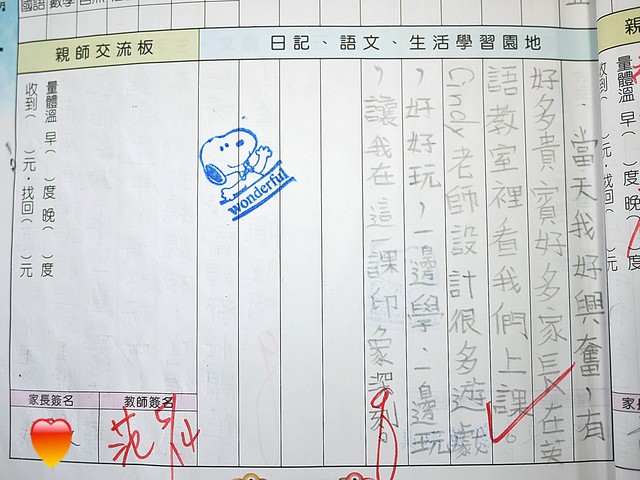 國語 數學
親師交流板
日記、語文、生活學習園地
．當天我好興奮，有
好多貴賓好多家長在英
語教室裡看我們上課。
Cindy老師設計很多遊戲
，好好玩，一邊學．一邊玩
，讓我在這一課印象深刻。
wonderful
量體溫 早（　）度 晚（　）度
收到（　）元．找回（　）元
家長簽名
教師簽名
范 5/14
親
量體溫 早（　）度晚（　）度
收到（　）元．找回（　）元
家長